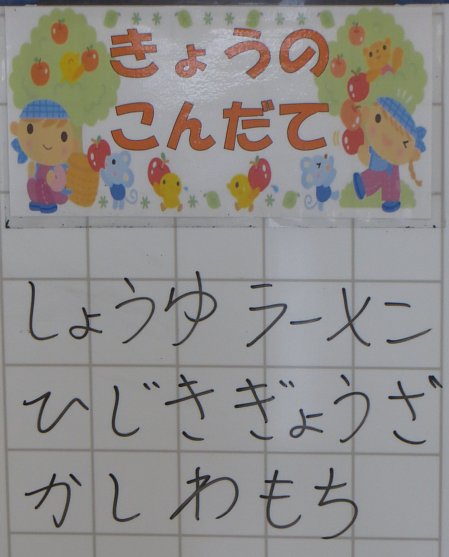 きょうの
こんだて
しょうゆ ラーメン
ひじきぎょうざ
かしわもち